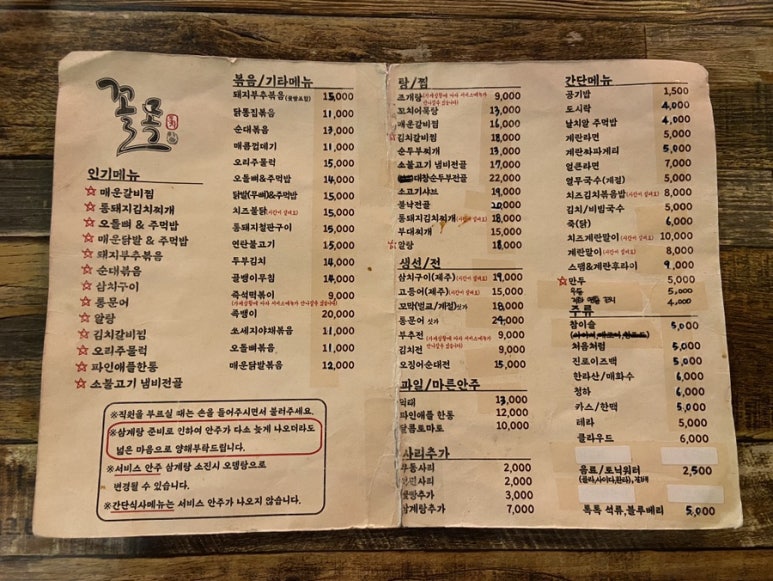 꼴목
인기메뉴
☆ 매운갈비찜
☆ 통돼지김치찌개
☆ 오돌뼈 & 주먹밥
☆ 매운닭발 & 주먹밥
☆ 돼지부추볶음
☆ 순대볶음
☆ 삼치구이
☆ 통문어
☆ 알탕
☆ 김치갈비찜
☆ 오리주물럭
☆ 파인애플한통
☆ 소불고기 냄비전골
볶음/기타메뉴
돼지부추볶음 15,000
닭똥집볶음 11,000
순대볶음 13,000
매콤껍데기 11,000
오리주물럭 15,000
오돌뼈&주먹밥 14,000
닭발(무뼈)&주먹밥 15,000
치즈불닭 15,000
통돼지철판구이 15,000
연탄불고기 15,000
두부김치 14,000
골뱅이무침 14,000
즉석떡볶이 9,000
즉뱅이 20,000
쏘세지야채볶음 11,000
오돌뼈볶음 11,000
매운닭발볶음 12,000
※직원을 부르실 때는 손을 들어주시면서 불러주세요.
※삼계탕 준비로 인하여 안주가 다소 늦게 나오더라도
넓은 마음으로 양해부탁드립니다.
※서비스 안주 삼계탕 소진시 오뎅탕으로
변경될 수 있습니다.
※간단식사메뉴는 서비스 안주가 나오지 않습니다.
탕/찜
조개탕 9,000
꼬치어묵탕 13,000
매운갈비찜 16,000
☆ 김치갈비찜 18,000
순두부찌개 13,000
소불고기 냄비전골 17,000
대창순두부전골 22,000
소고기샤브 19,000
불낙전골 20,000
통돼지김치찌개 18,000
부대찌개 15,000
☆ 알탕 18,000
생선/전
삼치구이(제주) 19,000
고등어(제주) 15,000
꼬막(벌교/계절)싯가 18,000
통문어 싯가 24,000
부추전 9,000
김치전 9,000
오징어순대전 15,000
파일/마른안주
먹태 13,000
파인애플 한통 12,000
설탕토마토 10,000
사리추가
우동사리 2,000
라면사리 2,000
3,000
삼계탕추가 7,000
간단메뉴
공기밥 1,500
도시락 4,000
날치알 주먹밥 4,000
계란라면 5,000
계란짜파게티 5,000
얼큰라면 7,000
열무국수(계절) 5,000
치즈김치볶음밥 8,000
김치/비빔국수 5,000
죽(닭) 6,000
치즈계란말이 10,000
계란말이 8,000
스팸&계란후라이 9,000
☆ 만두 5,000
우동 5,000
4,000
주류
참이슬 5,000
처음처럼 5,000
진로이즈백 5,000
한라산/매화수 6,000
청하 6,000
카스/한맥 5,000
테라 5,000
클라우드 6,000
음료/토닉워터 2,500
(콜라,사이다,환타),갈배
톡톡 석류,블루베리 5,000